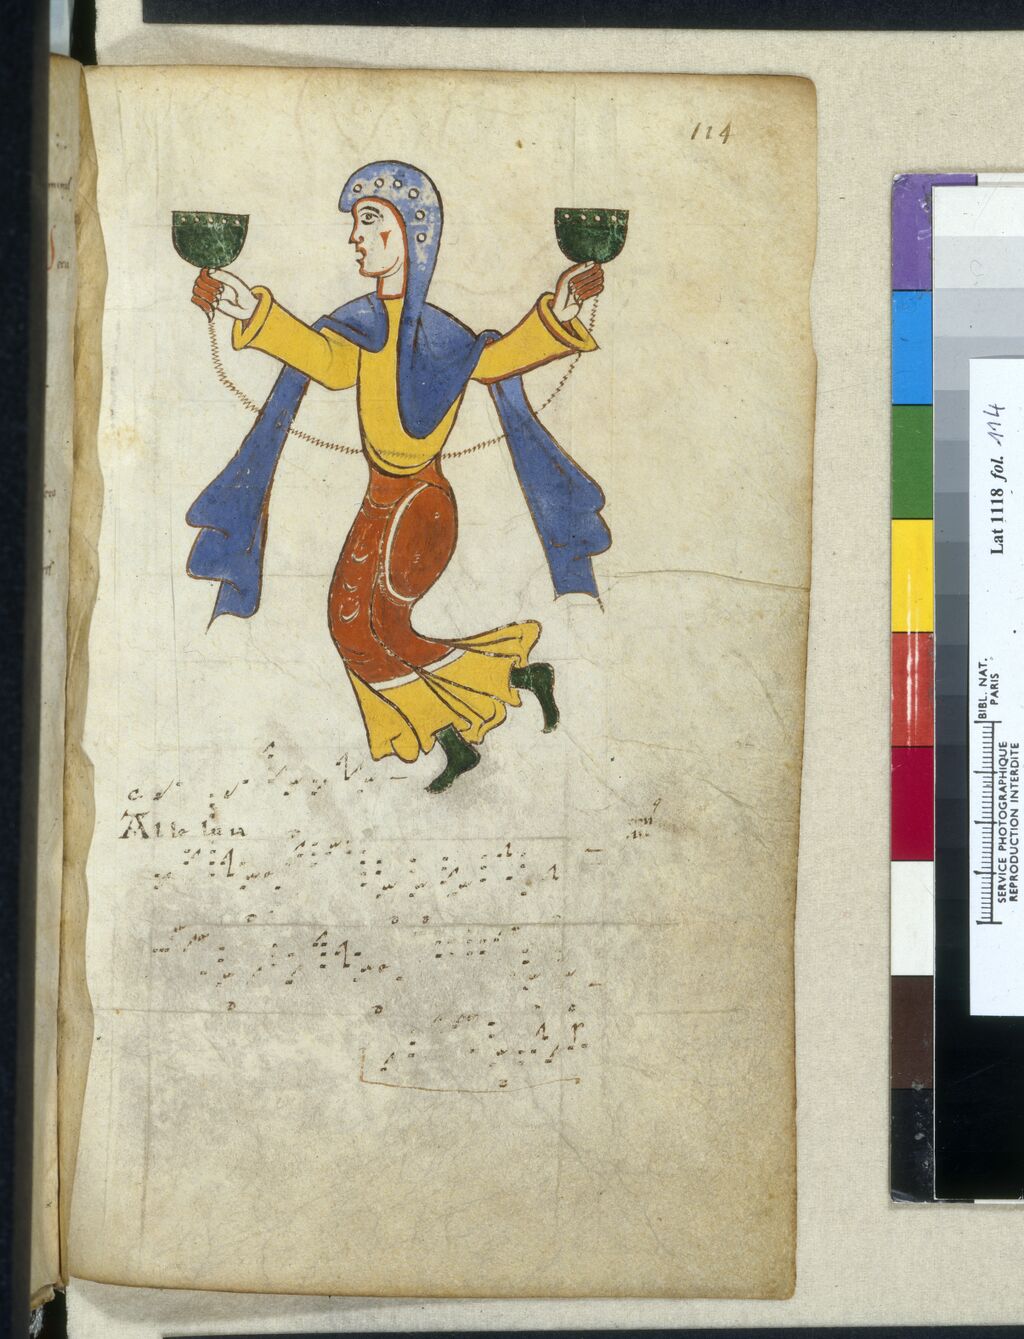 114
Alleluia
Lat 1118 fol. 114
BIBL. NAT.
PARIS
SERVICE PHOTOGRAPHIQUE
REPRODUCTION INTERDITE